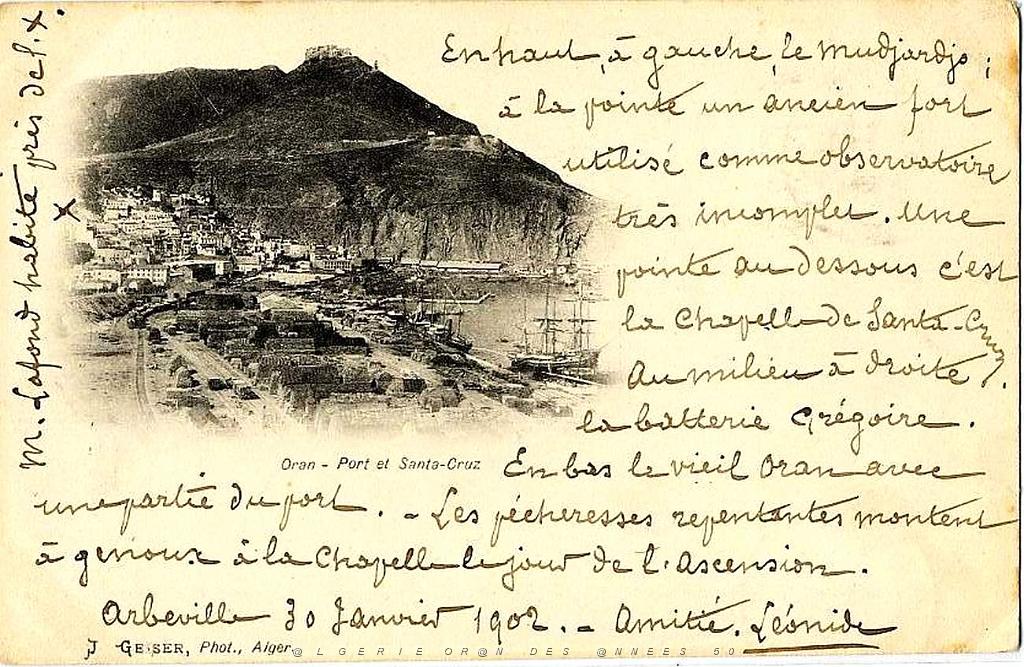 En haut, à gauche, le Mudjardjo ;
à la pointe un ancien fort
utilisé comme observatoire
très incomplet. Une
pointe au dessous c'est
la Chapelle de Santa-Cruz.
Au milieu à droite
la batterie Grégoire.
Oran - Port et Santa-Cruz
En bas le vieil Oran avec
une partie du port. - Les pécheresses repentantes montent
à genoux à la Chapelle le jour de l'Ascension.
Arbeville 30 Janvier 1902. - Amitié. Léonide
J GEISER, Phot., Alger.
@LGERIE OR@N DES @NNEES 50
M. Lafond habite près de l. x.
x